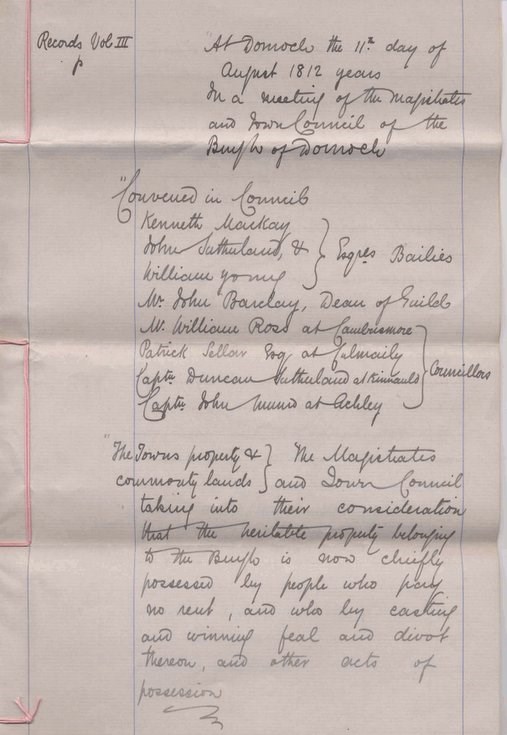 Records Vol III
p
At Dornoch the 11th day of
August 1812 years
In a meeting of the Magistrates
and Town Council of the
Burgh of Dornoch
"Convened in Council
Kenneth Mackay
John Sutherland, &
William Young
Esqres Bailies
Mr. John Barclay, Dean of Guild
Mr. William Ross at Cambusmore
Patrick Sellar Esq at Culmaily
Captn Duncan Sutherland at Kinnauld
Captn John Munro at Achley
Councillors
"The Towns property &
commonty lands
The Magistrates
and Town Council
taking into their consideration
that the heritable property belonging
to the Burgh is now chiefly
possessed by people who pay
no rent, and who by casting
and winning feal and divot
thereon, and other acts of
possession